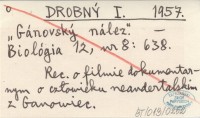 DROBNÝ I. 1957.
"Gánovský nález". –
Biológia 12, nr 8: 638.
Rec. o filmie dokumentar-
nym o człowieku neandertalskim
z Ganowiec.